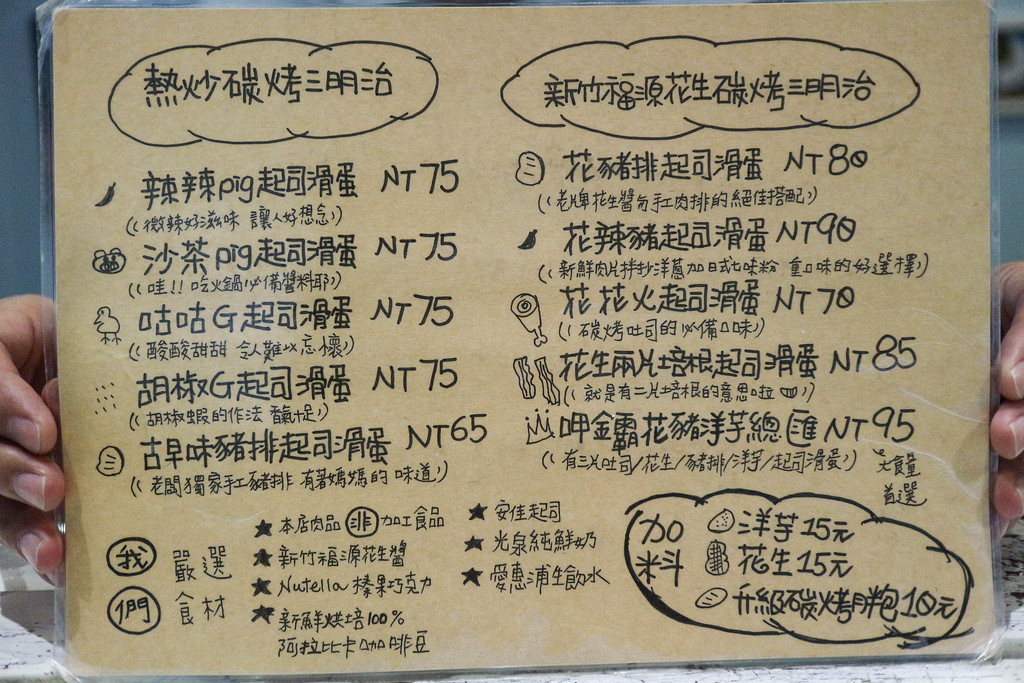 熱炒碳烤三明治
辣辣pig起司滑蛋 NT75
((微辣好滋味 讓人好想念))
沙茶pig起司滑蛋 NT75
((哇!! 吃火鍋必備醬料耶))
咕咕G起司滑蛋 NT75
((酸酸甜甜 令人難以忘懷))
胡椒G起司滑蛋 NT75
((胡椒蝦的作法 香氣足))
古早味豬排起司滑蛋 NT65
((老闆獨家手工豬排 有著媽媽的 味道))
新竹福源花生碳烤三明治
花豬排起司滑蛋 NT80
((老牌花生醬與手工肉排的絕佳搭配))
花辣豬起司滑蛋 NT90
((新鮮肉片拌炒洋蔥加日式七味粉 重口味的好選擇))
花花火起司滑蛋 NT70
((碳烤吐司的必備口味))
花生兩片培根起司滑蛋 NT85
((就是有二片培根的意思啦))
呷金霸花豬洋芋總匯 NT95
((有三片吐司/花生/豬排/洋芋/起司滑蛋))
大食量
首選
我們
嚴選
食材
★ 本店肉品 非 加工食品
★ 新竹福源花生醬
★ Nutella 榛果巧克力
★ 新鮮烘培100%
阿拉比卡咖啡豆
★ 安佳起司
★ 光泉純鮮奶
★ 愛惠浦生飲水
加料
洋芋15元
花生15元
升級碳烤胖包10元